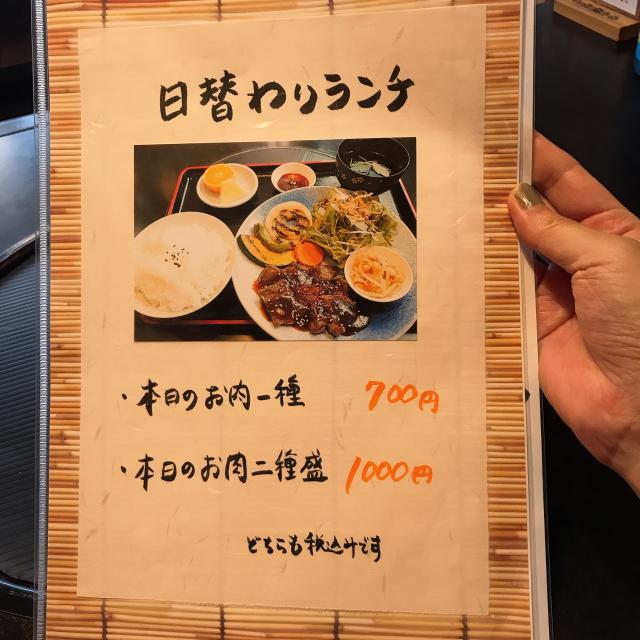 日替わりランチ
・本日のお肉一種 700円
・本日のお肉二種盛 1000円
どちらも税込みです